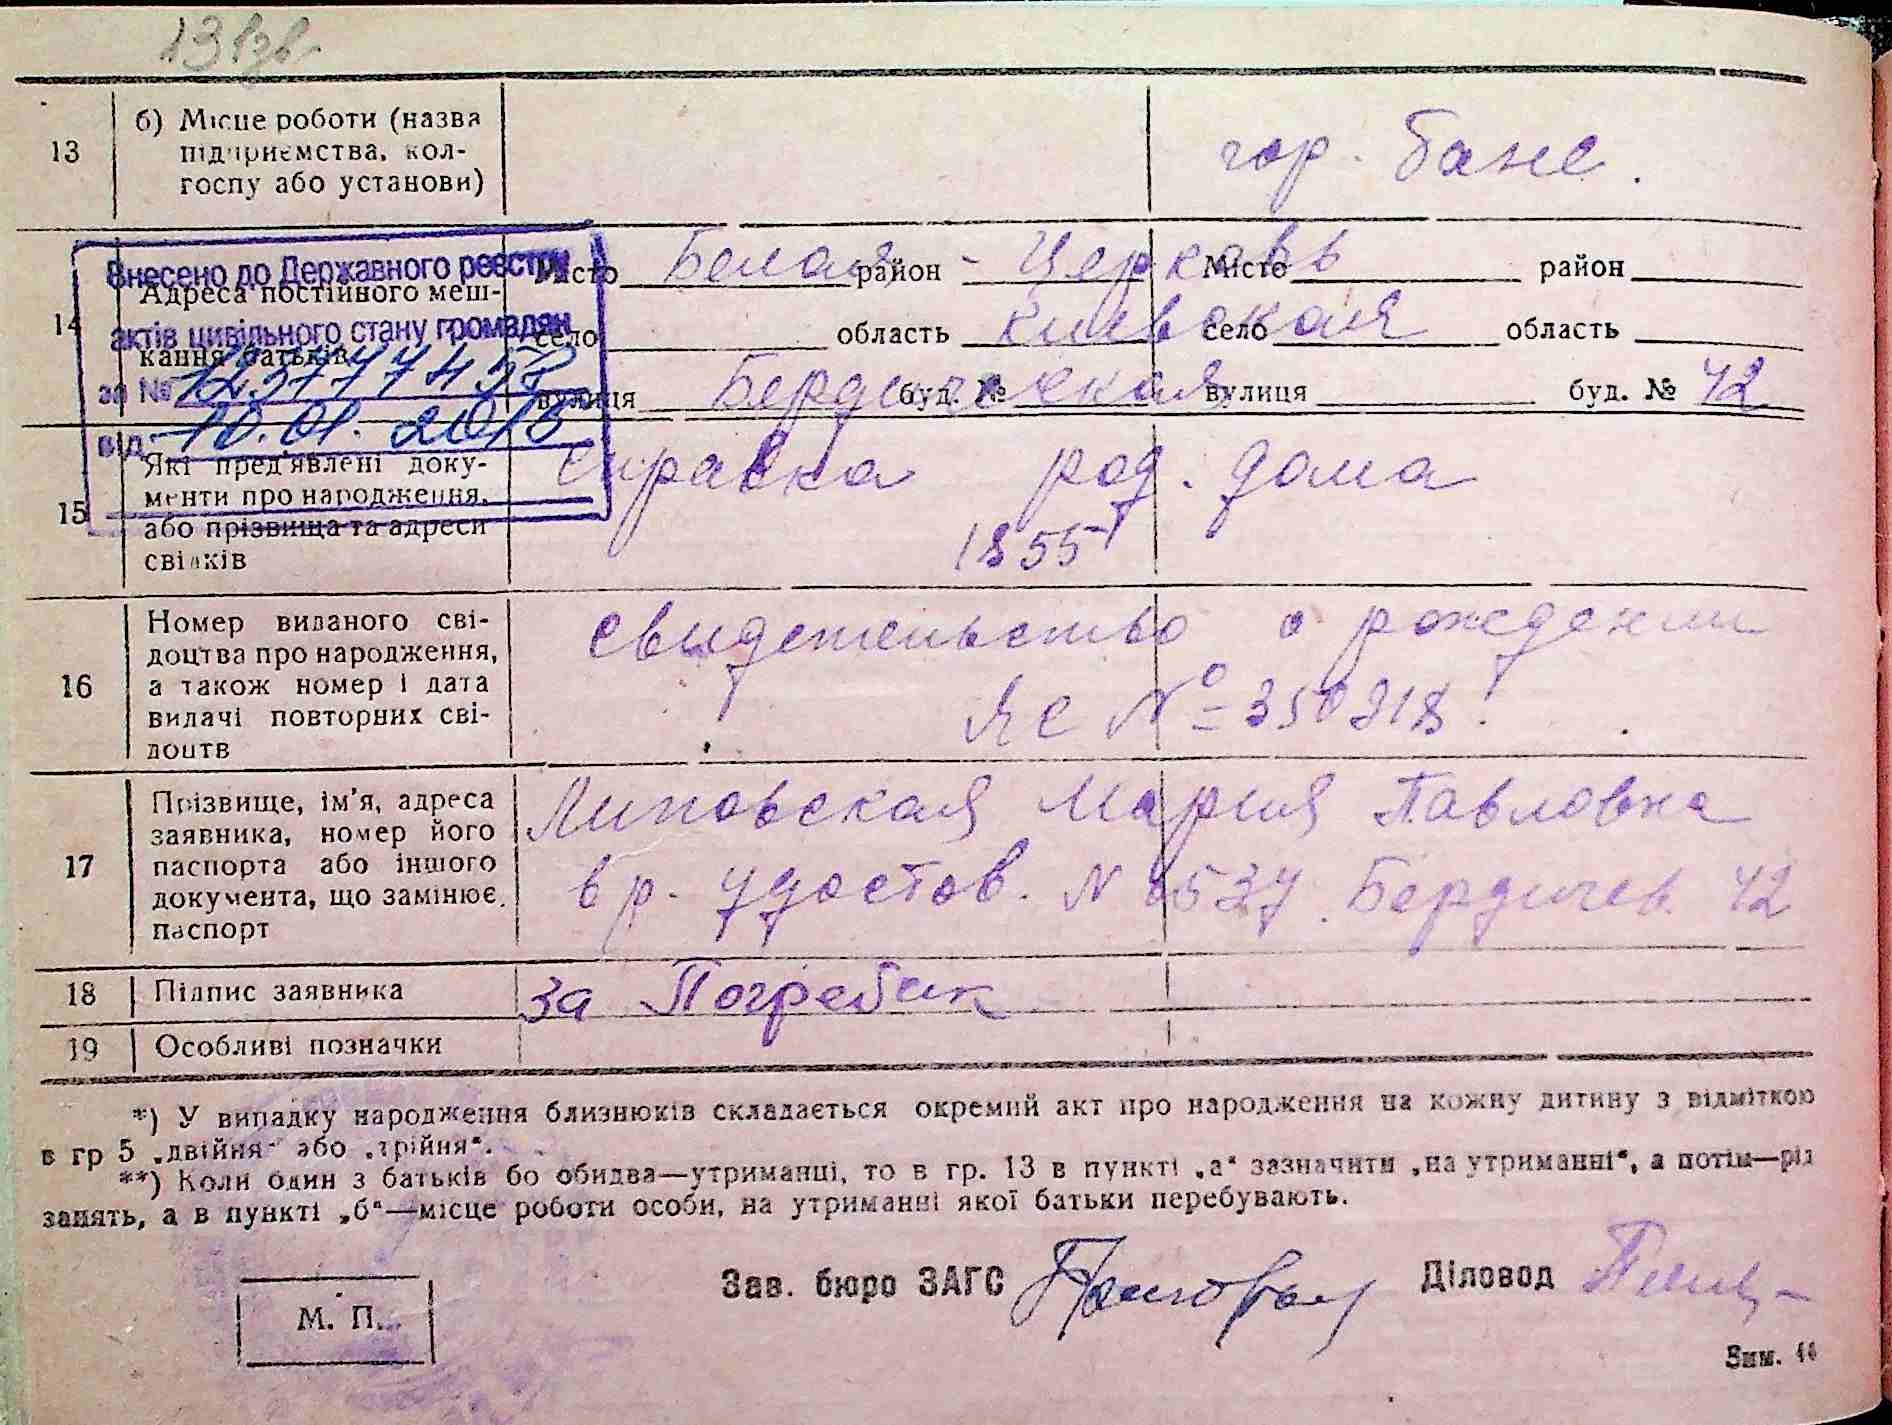 13 зв.
13
б) Місце роботи (назва
підприємства, кол-
госпу або установи)
гор. бане.
Внесено до Державного реєстру
актів цивільного стану громадян
за №
від 10.01.
14
Адреса постійного меш-
кання батьків
Місто Белая - район Церковь Місто район
село область Киевская село область
вулиця Бердическая буд. № вулиця буд. № 42
15
Які пред'явлені доку-
менти про народження,
або прізвища та адреси
свідків
справка род. дома
1855
16
Номер виданого сві-
доцтва про народження,
а також номер і дата
видачі повторних сві-
доцтв
свидетельство о рождении
ЯС № 350318.
17
Прізвище, ім'я, адреса
заявника, номер його
паспорта або іншого
документа, що замінює
паспорт
Липовская Мария Павловна
вр. удостов. N 6537. Бердичев. 42
18 Підпис заявника за Погребняк
19 Особливі позначки
*) У випадку народження близнюків складається окремий акт про народження на кожну дитину з відміткою
в гр 5 „двійня“ або „трійня“.
**) Коли один з батьків бо обидва—утриманці, то в гр. 13 в пункті „а“ зазначити „на утриманні“, а потім—рід
занять, а в пункті „б“—місце роботи особи, на утриманні якої батьки перебувають.
Зав. бюро ЗАГС Діловод
М. П.
Зам. 44